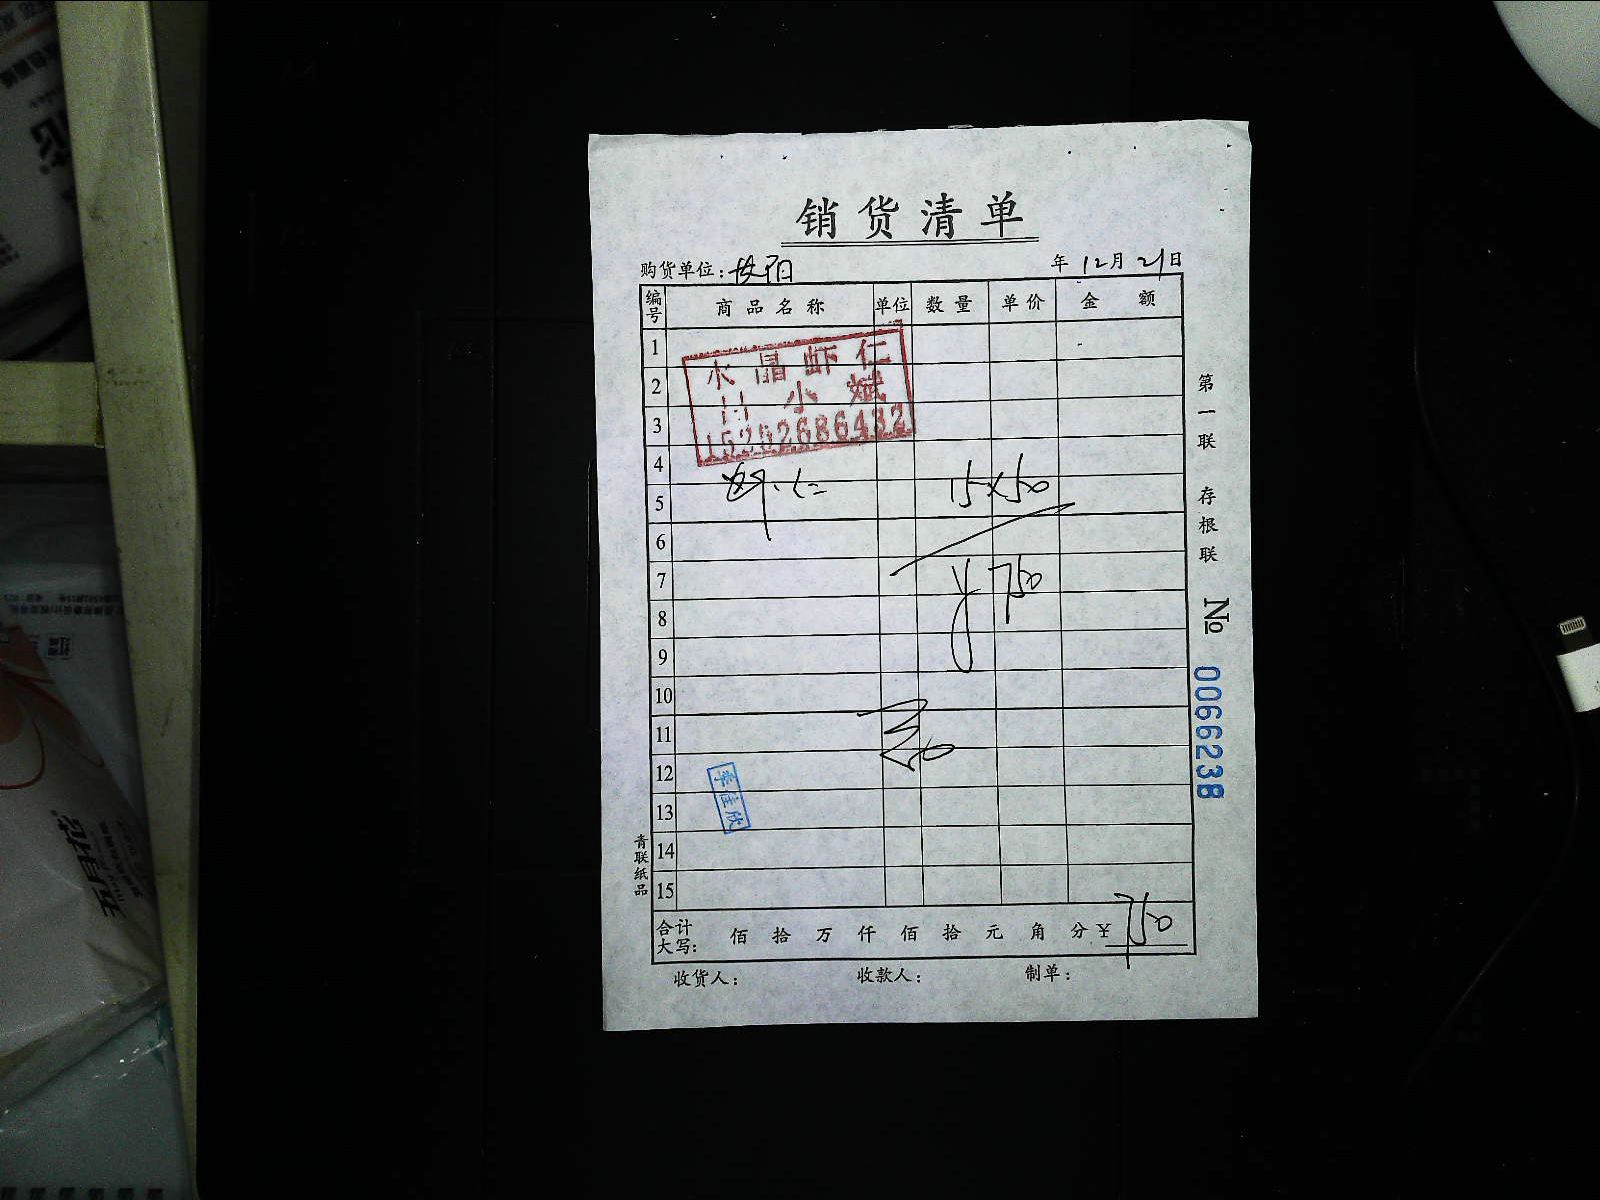 销货清单
购货单位: 年12月21日
编号 商品名称 单位 数量 单价 金额
1
2
3
水晶虾仁
小斌
15252686432
4
5 虾仁 15×50
6
7 ¥750
8
9
10
11
12
李佳欣
13
14
15
合计大写: 佰 拾 万 仟 佰 拾 元 角 分 ¥ 750
收货人: 收款人: 制单:
青联纸品
第一联 存根联
№ 0066238